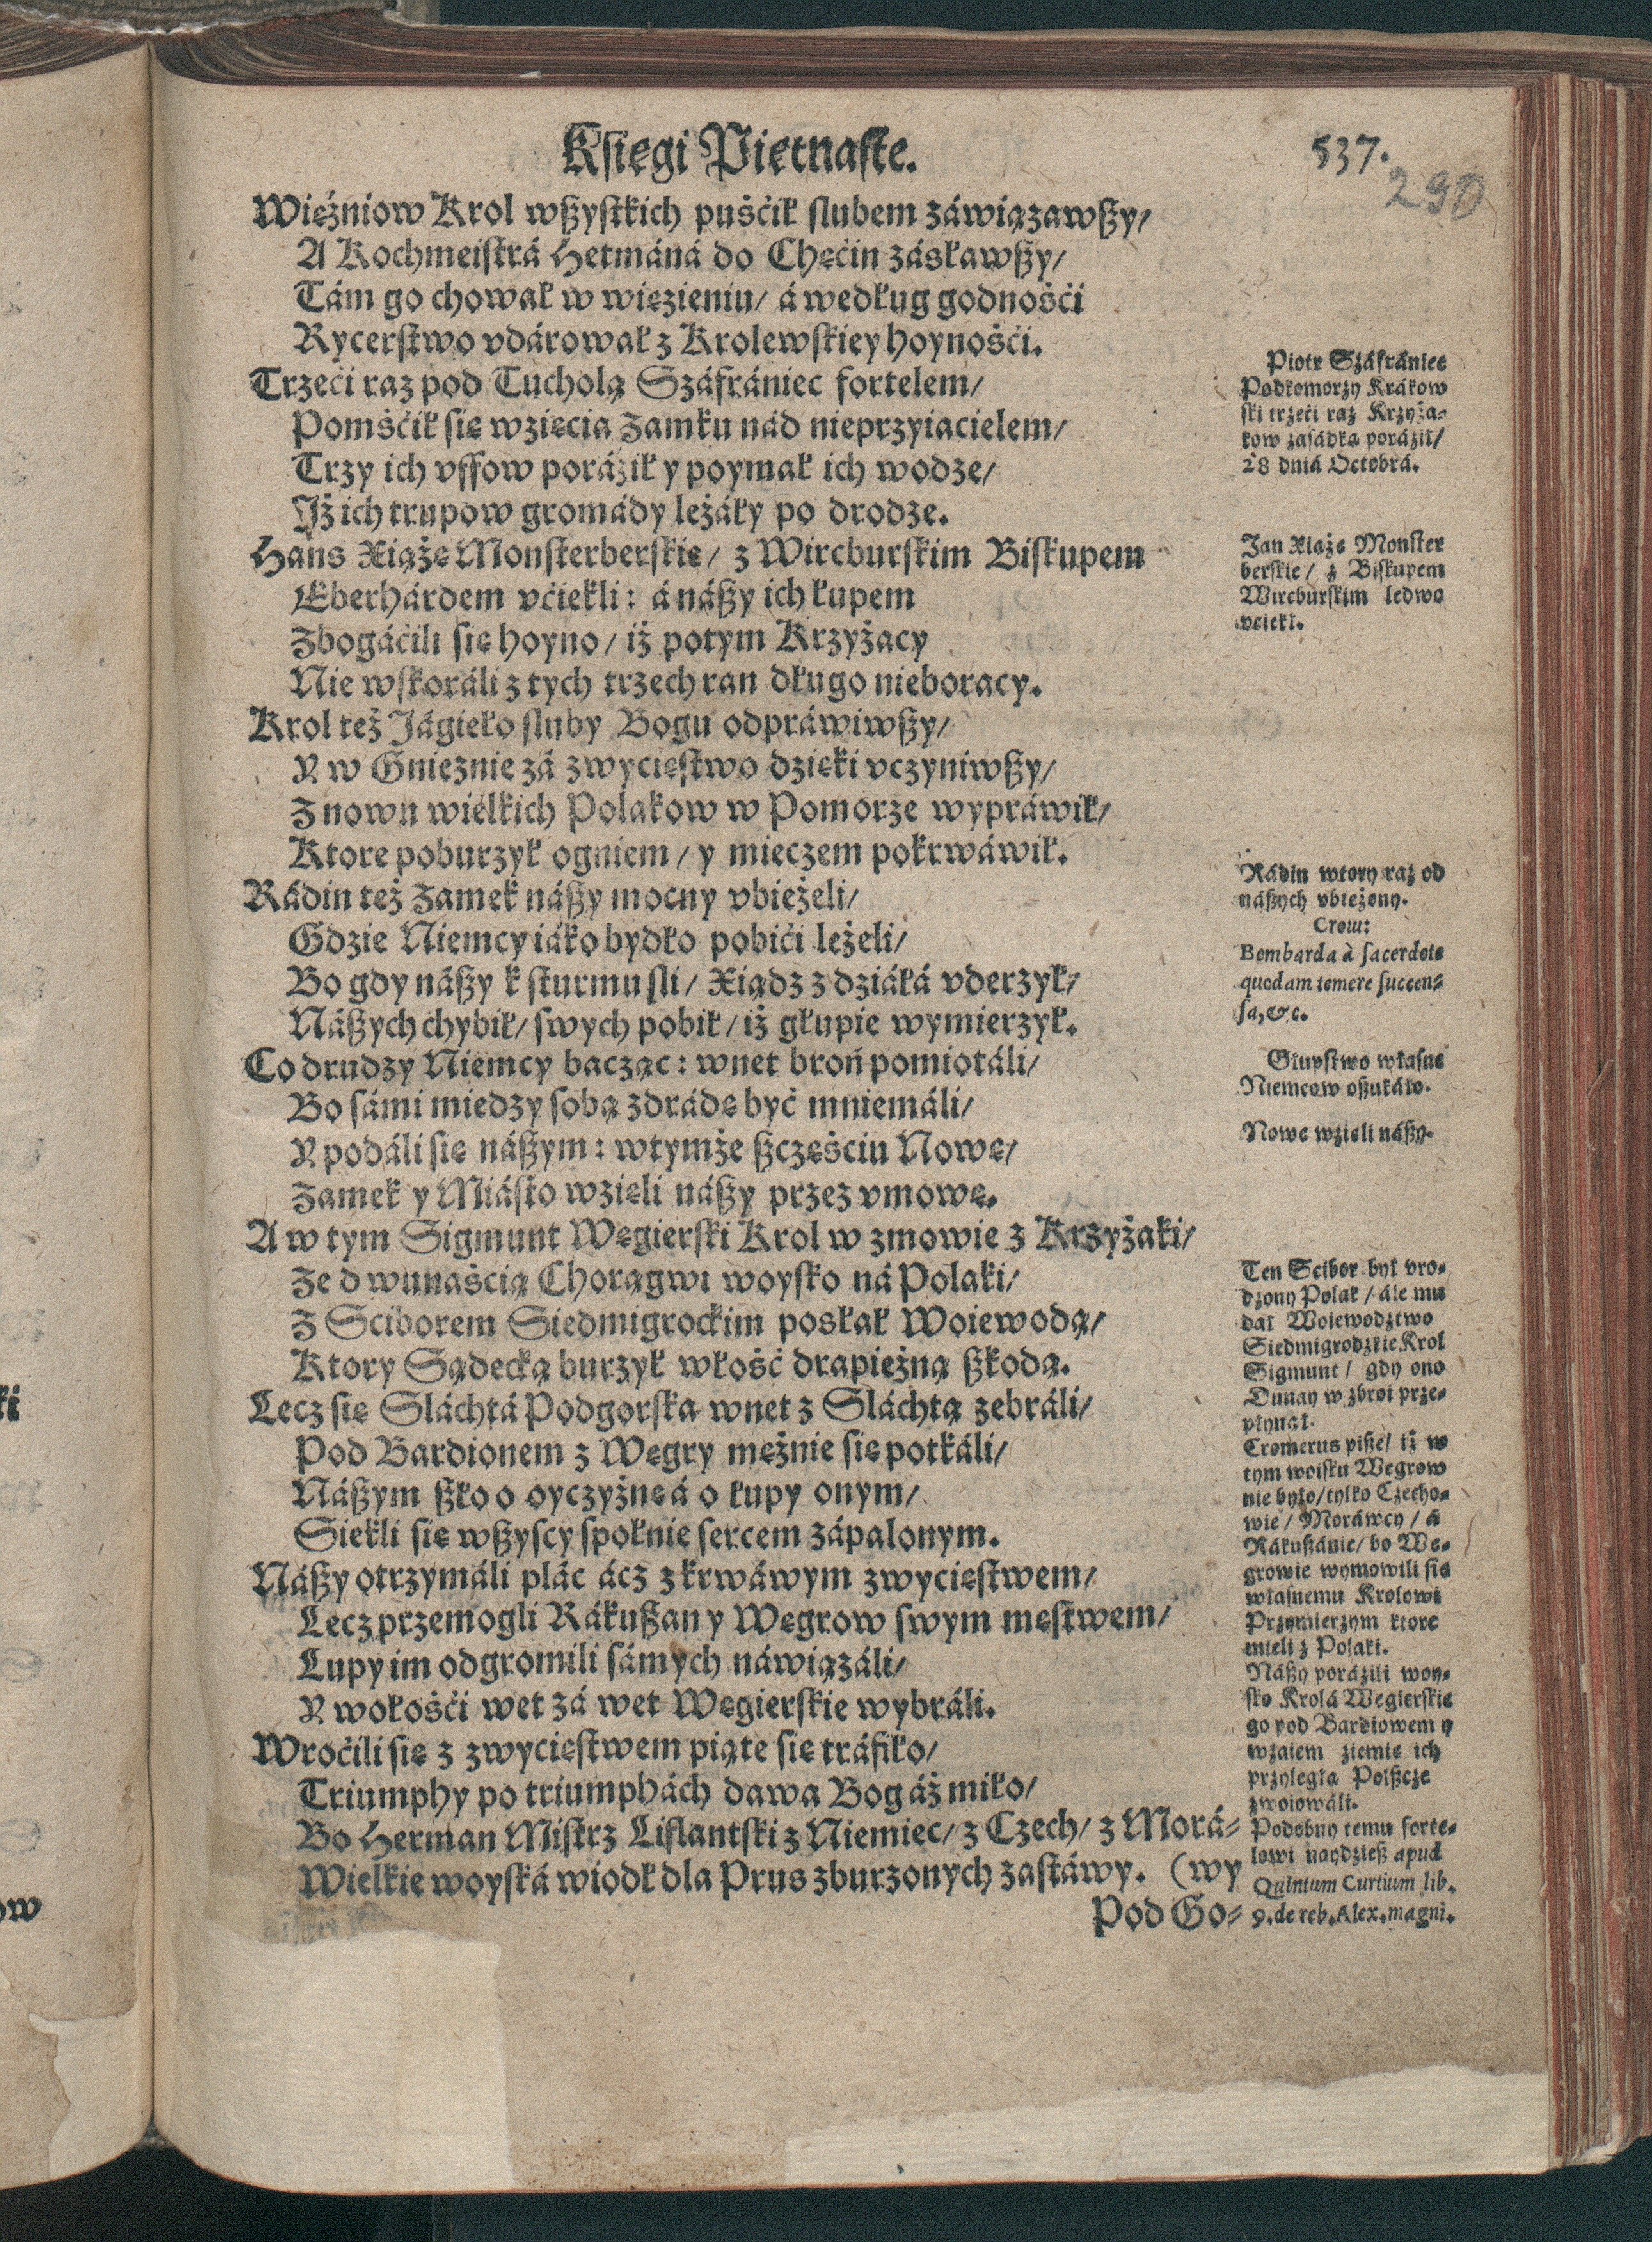 Księgi Piętnaste.
537.
290
Więźniow Krol wßystkich puśćił slubem záwiązawßy/
A Kochmeistrá Hetmáná do Chęćin zásławßy/
Tám go chował w więzieniu/ á według godnośći
Rycerstwo vdárował z Krolewskiey hoynośći.
Trzeći raz pod Tucholą Száfrániec fortelem/
Pomśćił się wzięcia Zamku nád nieprzyiacielem/
Trzy ich vffow poráźił y poymał ich wodze/
Iż ich trupow gromády leżáły po drodze.
Hans Xiążę Monsterberskie/ z Wircburskim Biskupem
Eberhárdem vćiekli: á náßy ich łupem
Zbogáćili się hoyno/ iż potym Krzyżacy
Nie wskoráli z tych trzech ran długo nieboracy.
Krol też Jágieło sluby Bogu odpráwiwßy/
Y w Gnieznie zá zwycięstwo dzięki vczyniwßy/
Znowu wielkich Polakow w Pomorze wypráwił/
Ktore poburzył ogniem/ y mieczem pokrwáwił.
Rádin też Zamek náßy mocny vbieżeli/
Gdzie Niemcy iáko bydło pobići leżeli/
Bo gdy náßy k sturmu sli/ Xiądz z dziáłá vderzył/
Náßych chybił/ swych pobił/ iż głupie wymierzył.
Co drudzy Niemcy bacząc: wnet broń pomiotáli/
Bo sámi miedzy sobą zdrádę być mniemáli/
Y podáli się náßym: wtymże ßczęsciu Nowe/
Zamek y Miásto wzięli náßy przez vmowę.
A w tym Sigmunt Węgierski Krol w zmowie z Krzyżaki/
Ze dwunaścią Chorągwi woysko ná Polaki/
Z Sciborem Siedmigrockim posłał Woiewodą/
Ktory Sądecką burzył włość drapieżną ßkodą.
Lecz się Sláchtá Podgorska wnet z Sláchtą zebráli/
Pod Bardionem z Węgry mężnie się potkáli/
Náßym ßło o oyczyznę á o łupy onym/
Siekli się wßyscy społnie sercem zápalonym.
Náßy otrzymáli plác ácz z krwáwym zwycięstwem/
Lecz przemogli Rákußan y Węgrow swym męstwem/
Lupy im odgromili sámych náwiązáli/
Y wołośći wet zá wet Węgierskie wybráli.
Wroćili się z zwycięstwem piąte się tráfiło/
Triumphy po triumphách dawa Bog áż miło/
Bo Herman Mistrz Liflantski z Niemiec/ z Czech/ z Morá-
Wielkie woyská wiodł dla Prus zburzonych zastáwy. (wy
Pod Go-
Piotr Száfrániec
Podkomorzy Krákow
ski trzeći raz Krzyża-
kow zasádką poráził/
28 dniá Octobrá.
Jan Xiążę Monster
berskie/ z Biskupem
Wircburskim ledwo
vciekł.
Rádin wtory raz od
náßych vbieżony.
Crom:
Bombarda à sacerdote
quodam temere succen-
sa, &c.
Głupstwo własne
Niemcow oßukáło.
Nowe wzięli náßy.
Ten Scibor był vro-
dzony Polak/ ále mu
dał Woiewodztwo
Siedmigrodzkie Krol
Sigmunt/ gdy ono
Dunay w zbroi prze-
płynął.
Cromerus piße/ iż w
tym woisku Węgrow
nie było/ tylko Czecho-
wie/ Moráwcy/ á
Rákußánie/ bo Wę-
growie wymowili się
własnemu Krolowi
Przymierzym ktore
mieli z Polaki.
Náßy porázili woy-
sko Krolá Węgierskie
go pod Bardiowem y
wzaiem ziemie ich
przyległa Polßcze
zwoiowáli.
Podobny temu forte-
lowi naydzieß apud
Quintum Curtium lib.
9. de reb. Alex. magni.
ki
ow